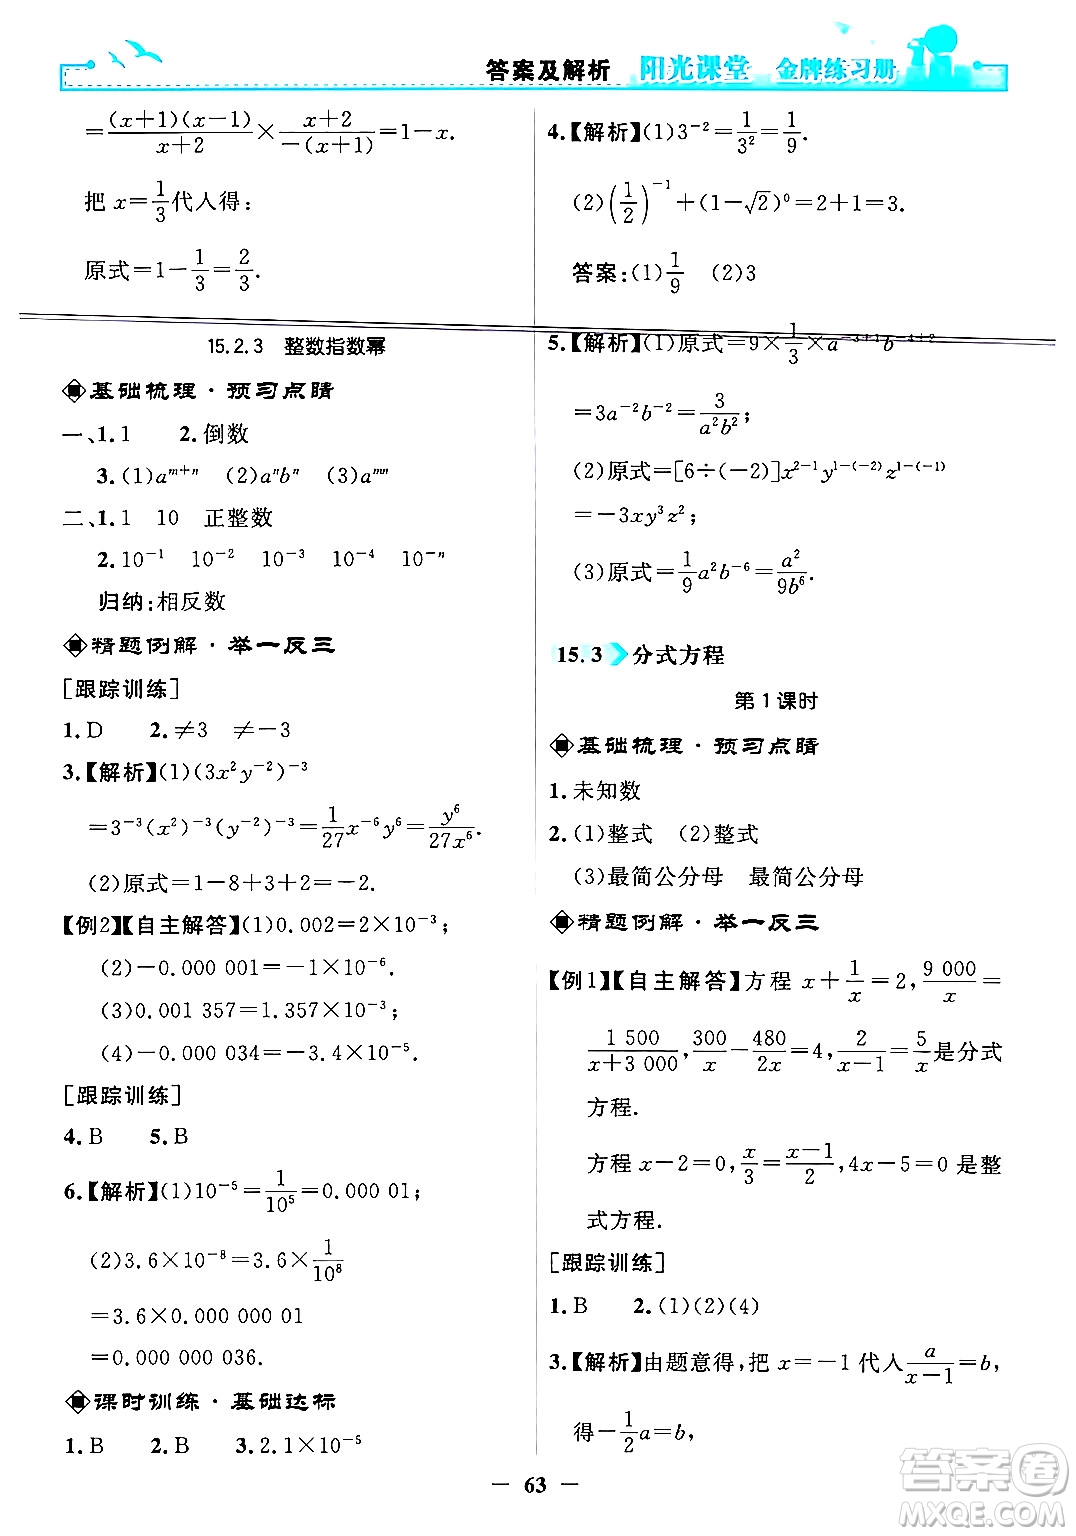 答案及解析 阳光课堂 金牌练习册
=\frac{(x+1)(x-1)}{x+2}×\frac{x+2}{-(x+1)}=1-x.
把 x=\frac{1}{3}代人得:
原式=1-\frac{1}{3}=\frac{2}{3}.
15.2.3 整数指数幂
基础梳理·预习点睛
一、1.1 2.倒数
3.(1)a^{m+n} (2)a^{n}b^{n} (3)a^{mn}
二、1.1 10 正整数
2.10^{-1} 10^{-2} 10^{-3} 10^{-4} 10^{-n}
归纳:相反数
精题例解·举一反三
[跟踪训练]
1.D 2.≠3 ≠-3
3.【解析】(1)(3x^{2}y^{-2})^{-3}
=3^{-3}(x^{2})^{-3}(y^{-2})^{-3}=\frac{1}{27}x^{-6}y^{6}=\frac{y^{6}}{27x^{6}}.
(2)原式=1-8+3+2=-2.
【例2】【自主解答】(1)0.002=2×10^{-3};
(2)-0.000 001=-1×10^{-6}.
(3)0.001 357=1.357×10^{-3};
(4)-0.000 034=-3.4×10^{-5}.
[跟踪训练]
4.B 5.B
6.【解析】(1)10^{-5}=\frac{1}{10^{5}}=0.000 01;
(2)3.6×10^{-8}=3.6×\frac{1}{10^{8}}
=3.6×0.000 000 01
=0.000 000 036.
课时训练·基础达标
1.B 2.B 3.2.1×10^{-5}
4.【解析】(1)3^{-2}=\frac{1}{3^{2}}=\frac{1}{9}.
(2)(\frac{1}{2})^{-1}+(1-\sqrt{2})^{0}=2+1=3.
答案:(1)\frac{1}{9} (2)3
5.【解析】(1)原式=9×\frac{1}{3}×a^{-3+1}b^{-4+2}
=3a^{-2}b^{-2}=\frac{3}{a^{2}b^{2}};
(2)原式=[6÷(-2)]x^{2-1}y^{1-(-2)}z^{1-(-1)}
=-3xy^{3}z^{2};
(3)原式=\frac{1}{9}a^{2}b^{-6}=\frac{a^{2}}{9b^{6}}.
15.3 分式方程
第1课时
基础梳理·预习点睛
1.未知数
2.(1)整式 (2)整式
(3)最简公分母 最简公分母
精题例解·举一反三
【例1】【自主解答】方程 x+\frac{1}{x}=2,\frac{9 000}{x}=
\frac{1 500}{x+3 000},\frac{300}{x}-\frac{480}{2x}=4,\frac{2}{x-1}=\frac{5}{x}是分式
方程.
方程 x-2=0,\frac{x}{3}=\frac{x-1}{2},4x-5=0 是整
式方程.
[跟踪训练]
1.B 2.(1)(2)(4)
3.【解析】由题意得,把 x=-1 代人\frac{a}{x-1}=b,
得-\frac{1}{2}a=b,
— 63 —
答案卷
MXQE.COM